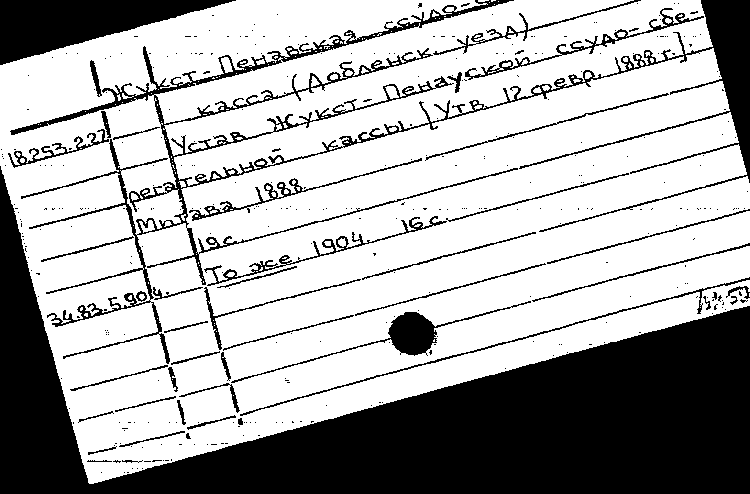 Жукст-Пенавская ссудо-с
касса. (Добленск. уезд)
18.253.2.227 Устав Жукст-Пенауской ссудо-сбе-
регательной кассы. [Утв. 12 февр. 1888 г.].
Митава, 1888.
19 с.
34.83.5.904. То же. 1904. 16 с.